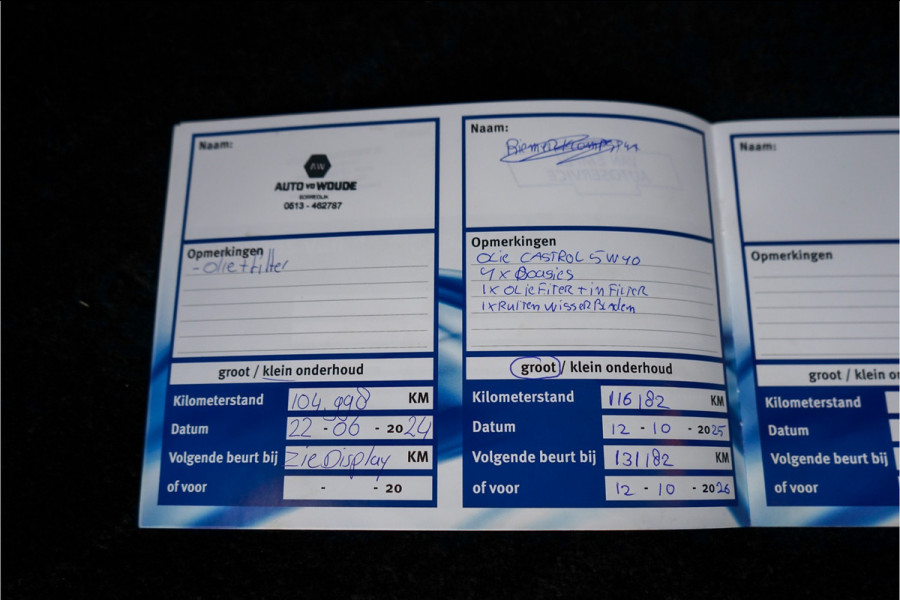 Naam:
AW
AUTO vd WOUDE
GORREDIJK
0513 - 462787
Opmerkingen
- olie + filter
groot / klein onderhoud
Kilometerstand 104.998 KM
Datum 22 - 06 - 2024
Volgende beurt bij Zie Display KM
of voor - - 20
Naam:
AUTOSERVICE
Opmerkingen
olie CASTROL 5W40
4x Bougies
1x OLieFiTER + in FiLTER
1x RuiTen wisser
groot / klein onderhoud
Kilometerstand 116182 KM
Datum 12 - 10 - 2025
Volgende beurt bij 131182 KM
of voor 12 - 10 - 2026
Naam:
Opmerkingen
groot / klein on
Kilometerstand
Datum
Volgende beurt bij
of voor